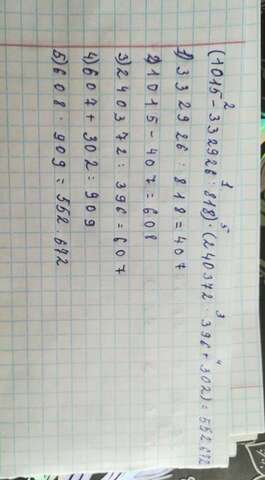 (1015 - 332926 : 818) · (240372 : 396 + 302) = 552.672
1) 332926 : 818 = 407
2) 1015 - 407 = 608
3) 240372 : 396 = 607
4) 607 + 302 = 909
5) 608 · 909 = 552.672